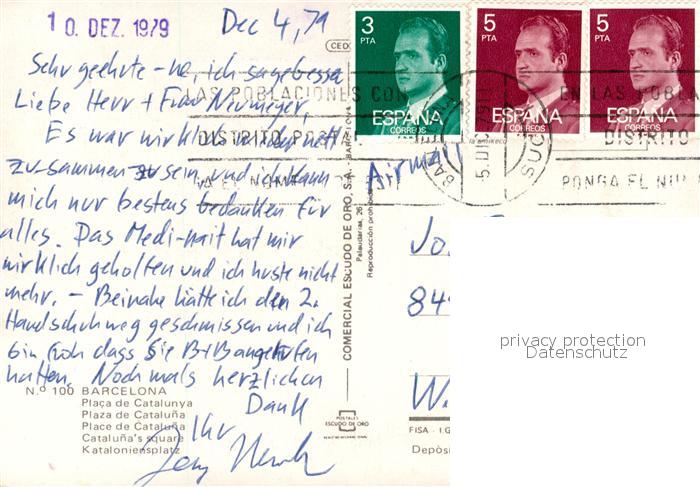 10. DEZ. 1979
Dec 4, 79
Sehr geehrte - ne, ich sage besser
Liebe Herr + Frau Neumeyer,
Es war wirklich wieder nett
zu sammen zu sein und ich kann
mich nur bestens bedanken für
alles. Das Medi-nait hat mir
wirklich geholfen und ich huste nicht
mehr. - Beinahe hätte ich den 2.
Handschuh weg geschmissen und ich
bin froh dass Sie B+B angerufen
hatten. Nochmals herzlichen
Dank
Ihr
N.º 100 BARCELONA
Plaça de Catalunya
Plaza de Cataluña
Place de Cataluña
Cataluña's square
Kataloniensplatz
CED
COMERCIAL ESCUDO DE ORO, S.A. - BARCELONA
Palaudarias, 26
Reproducción prohibida
POSTALES
ESCUDO DE ORO
3 PTA
ESPAÑA
CORREOS
5 PTA
ESPAÑA
CORREOS
5 PTA
ESPAÑA
CORREOS
LAS POBLACIONES CON
DISTRITO POSTAL
EN LAS POBLA
DISTRITO
PONGA EL NUM
5 DIC 79
SUC
Airmail
Jo
84
W
FISA - I.G
Depós
privacy protection
Datenschutz